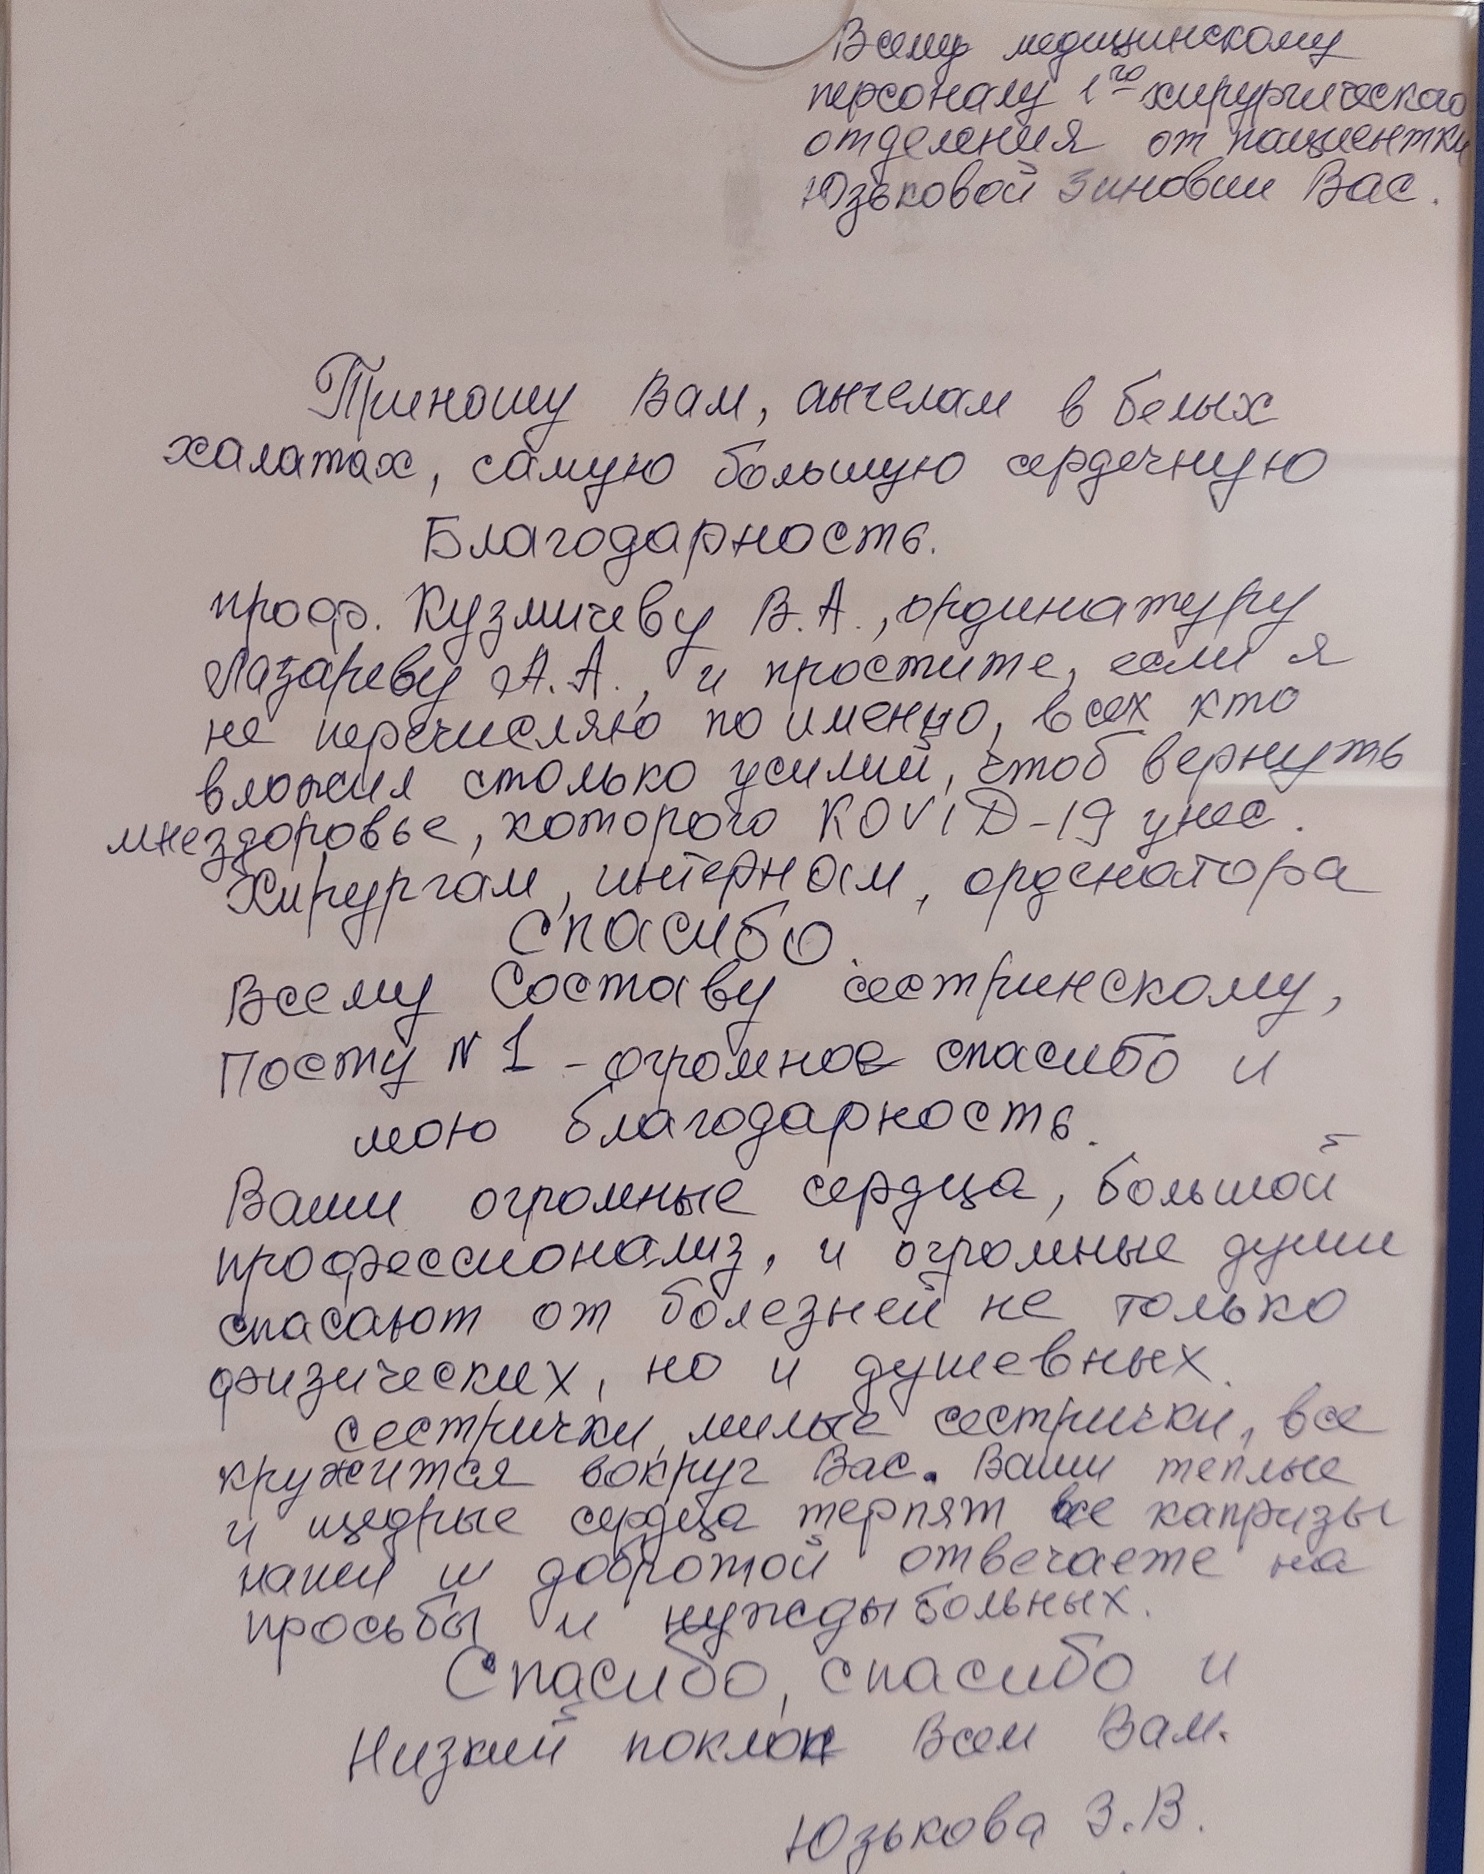 Всему медицинскому
персоналу 1го хирургического
отделения от пациентки
Юзьковой Зиновии Вас.
Приношу Вам, ангелам в белых
халатах, самую большую сердечную
Благодарность.
проф. Кузмичеву В.А., ординатуру
Лазареву А.А., и простите, если я
не перечисляю по именно, всех кто
вложил столько усилий, чтоб вернуть
мне здоровье, которого KOViD-19 унес.
Хирургам, интернам, орденатора
Спасибо.
Всему Составу сестринскому,
Посту N 1 - огромное спасибо и
мою благодарность.
Ваши огромные сердца, большой
профессионализ, и огромные души
спасают от болезней не только
физических, но и душевных.
сестрички, милые сестрички, все
кружится вокруг Вас. Ваши теплые
и щедрые сердца терпят все капризы
наши и добротой отвечаете на
просьбы и нужды больных.
Спасибо, спасибо и
Низкий поклон Всем Вам.
Юзькова З.В.